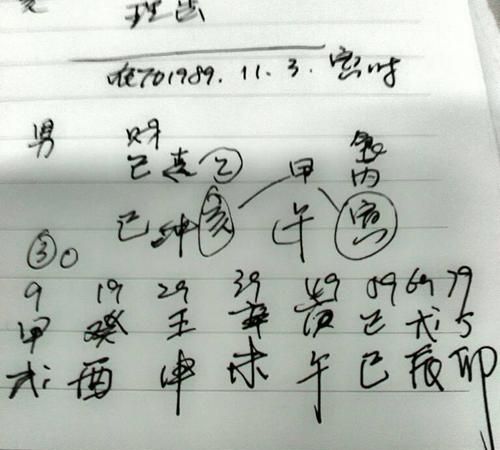 理法
1989.11.3. 寅时
男 财
己 乙 甲 丙
己 亥 午 寅
③0
9 19 29 39 49 59 69 79
甲 癸 壬 辛 庚 己 戊 丁
戌 酉 申 未 午 巳 辰 卯